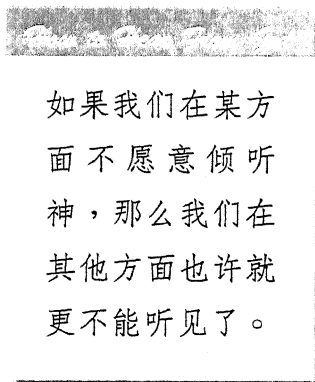 如果我们在某方
面不愿意倾听
神，那么我们在
其他方面也许就
更不能听见了。